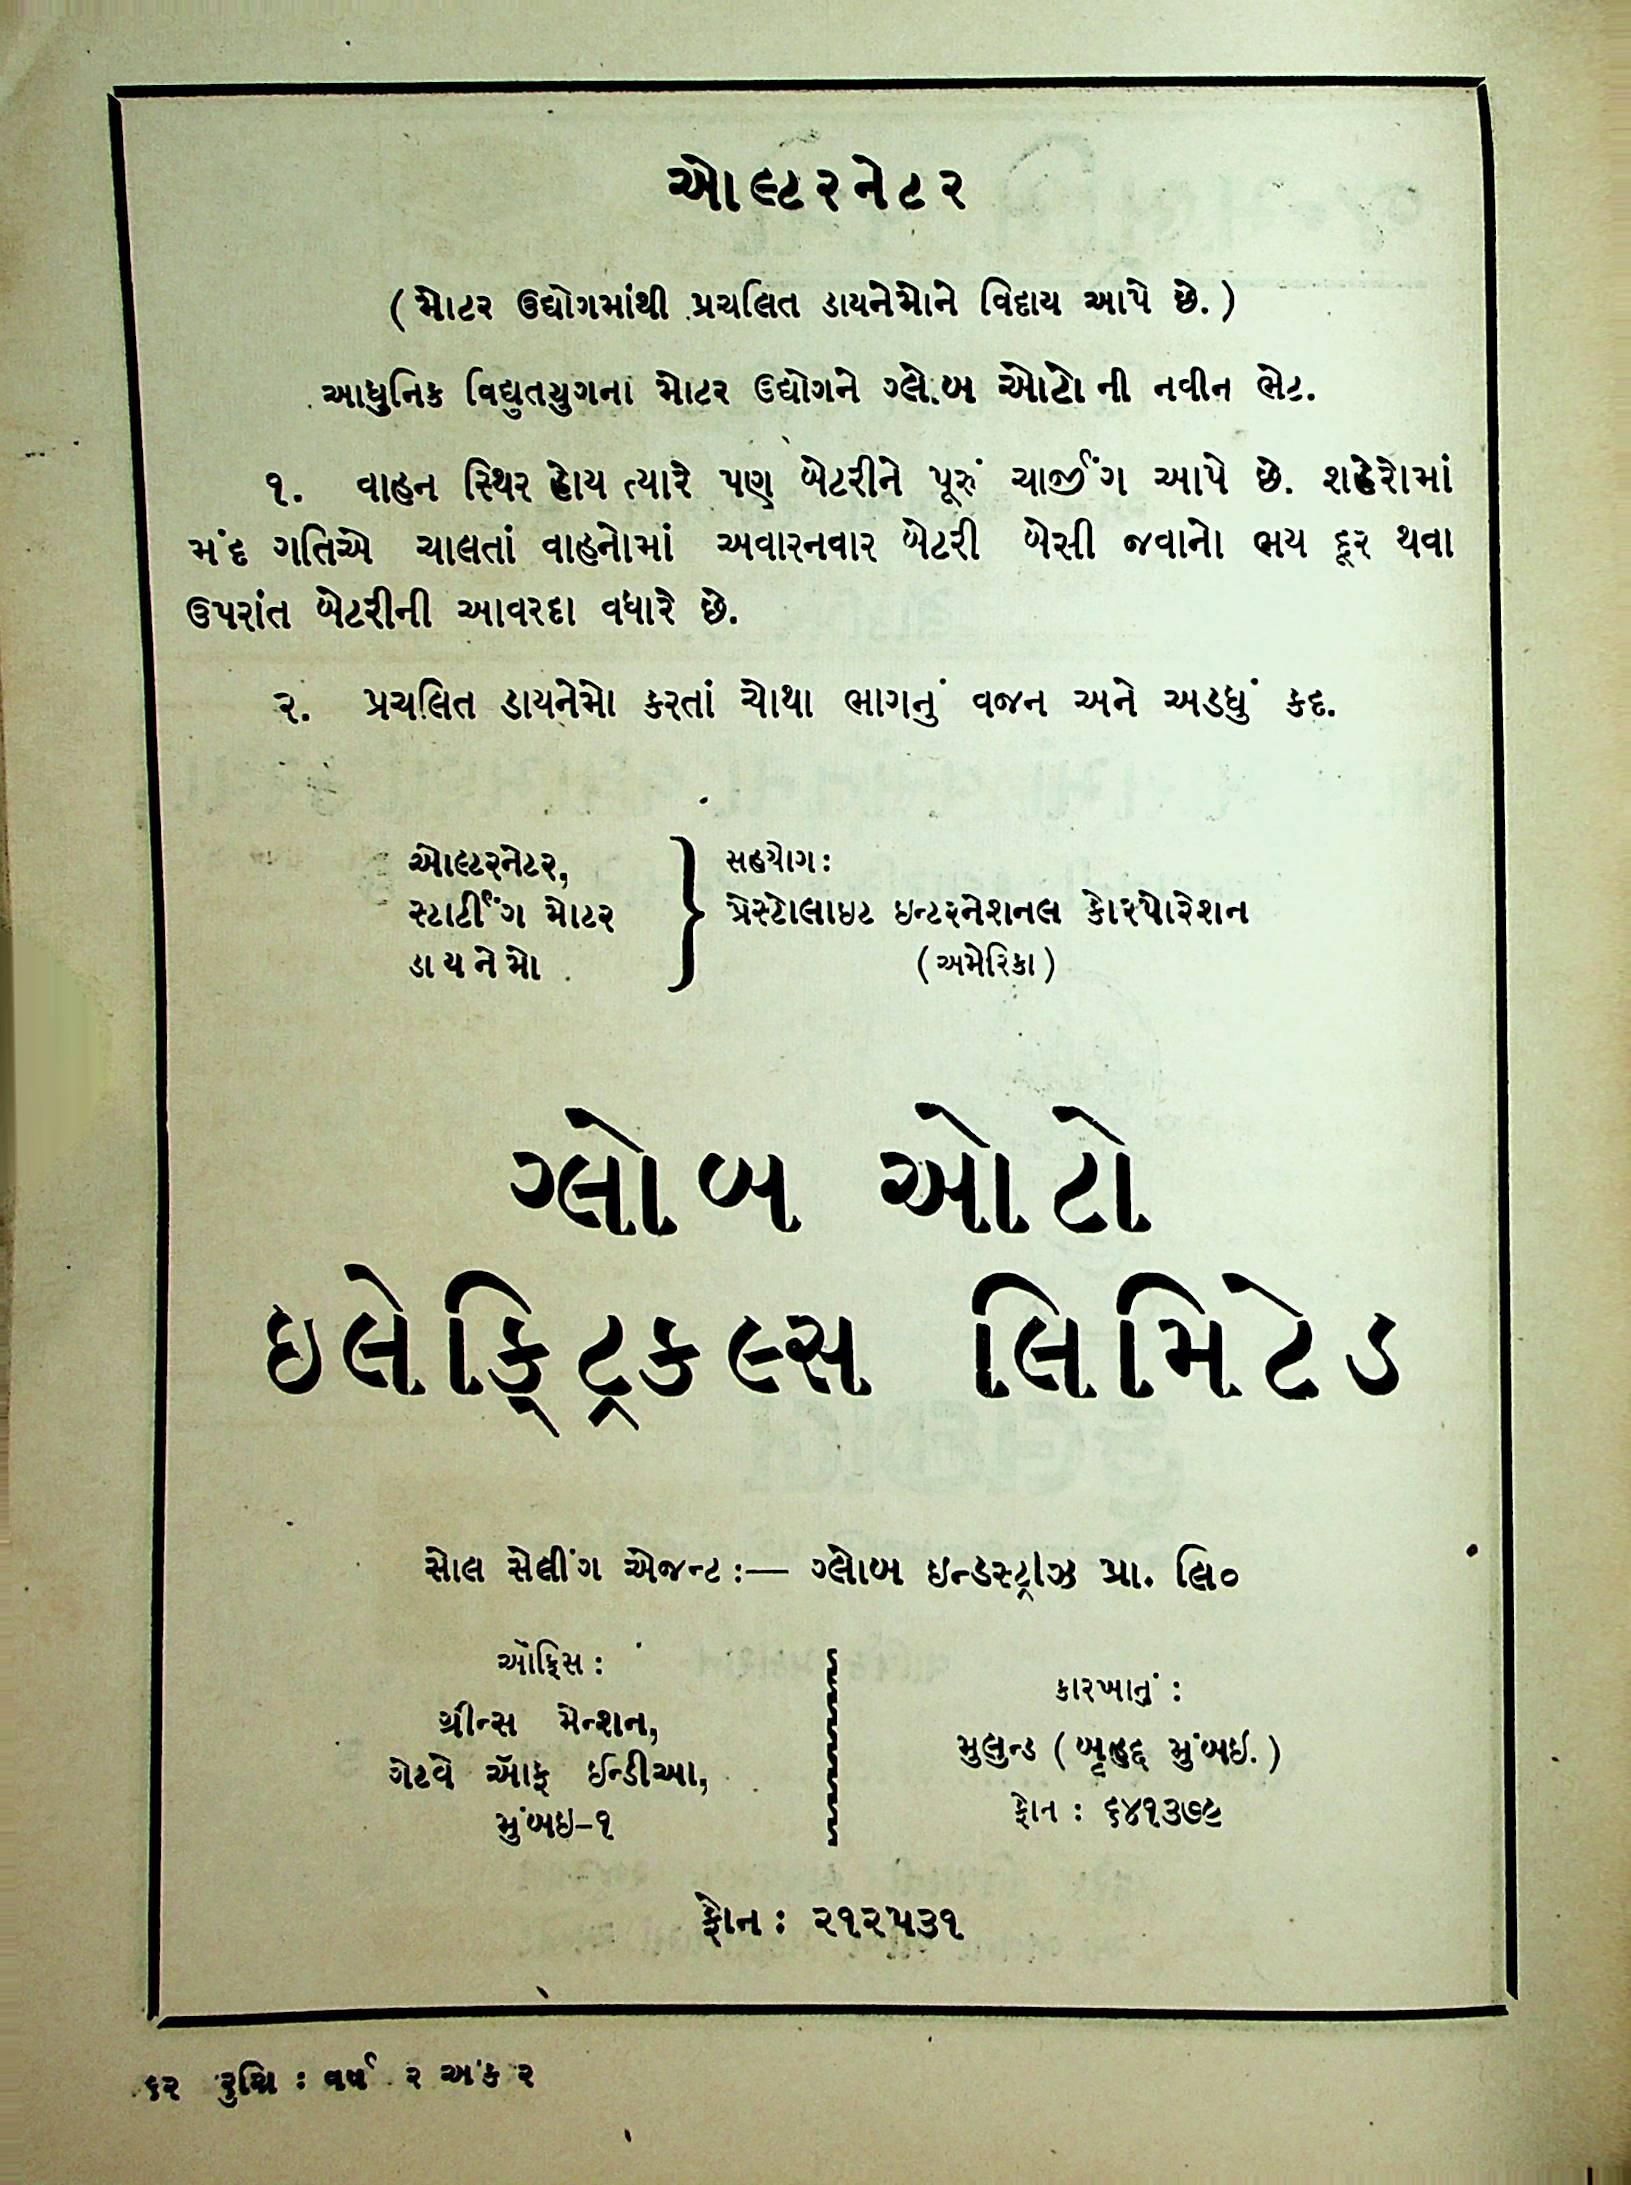 ઓલ્ટરનેટર
( મોટર ઉદ્યોગમાંથી પ્રચલિત ડાયનેમોને વિદાય આપે છે. )
આધુનિક વિદ્યુતયુગના મોટર ઉદ્યોગને ગ્લોબ ઓટો ની નવીન ભેટ.
૧. વાહન સ્થિર હોય ત્યારે પણ બેટરીને પૂરું ચાર્જીંગ આપે છે. શહેરોમાં
મંદ ગતિએ ચાલતાં વાહનોમાં અવારનવાર બેટરી બેસી જવાનો ભય દૂર થવા
ઉપરાંત બેટરીની આવરદા વધારે છે.
૨. પ્રચલિત ડાયનેમો કરતાં ચોથા ભાગનું વજન અને અડધું કદ.
ઓલ્ટરનેટર,
સ્ટાર્ટીંગ મોટર
ડાયનેમો
સહયોગ :
પ્રેસ્ટોલાઇટ ઇન્ટરનેશનલ કોરપોરેશન
( અમેરિકા )
ગ્લોબ ઓટો
ઇલેક્ટ્રિકલ્સ લિમિટેડ
સોલ સેલીંગ એજન્ટ :— ગ્લોબ ઇન્ડસ્ટ્રીઝ પ્રા. લિ૦
ઑફિસ :
ગ્રીન્સ મેન્શન,
ગેટવે ઑફ ઈન્ડીઆ,
મુંબઇ-૧
કારખાનું :
મુલુન્ડ ( બૃહદ્ મુંબઇ. )
ફોન : ૬૪૧૩૭૯
ફોન : ૨૧૨૫૩૧
૬૨ રુચિ : વર્ષ ૨ અંક ૨